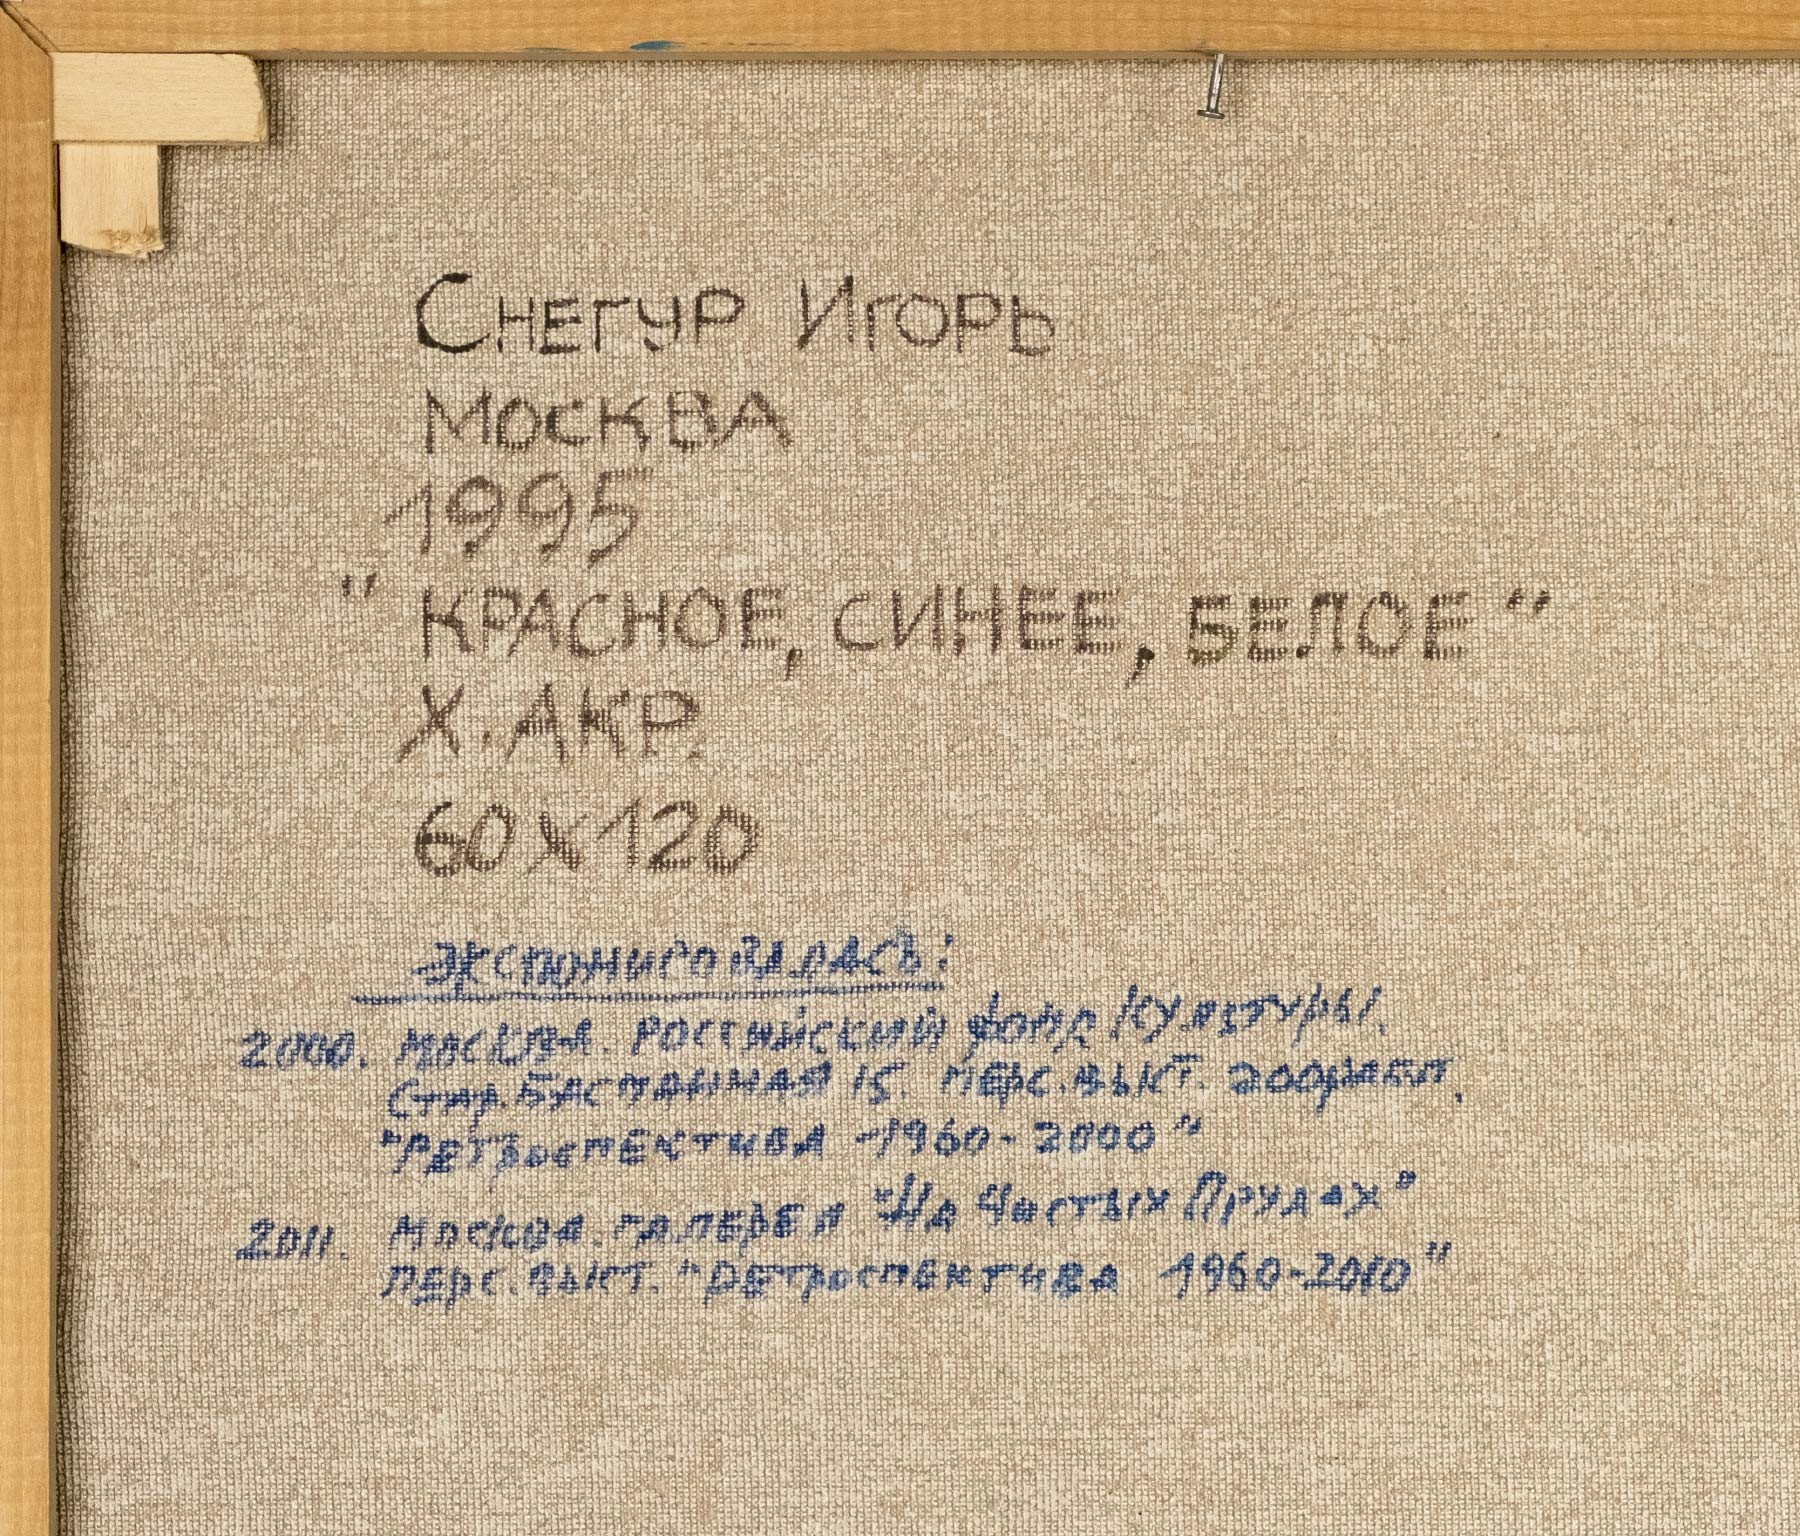 Снегур Игорь
Москва
1995
"КРАСНОЕ, СИНЕЕ, БЕЛОЕ"
Х. АКР.
60х120
Экспонировалась:
2000. Москва. Российский фонд Культуры.
Стар. Басманная 15. Перс. выст. 200 работ.
"Ретроспектива - 1960 - 2000"
2011. Москва. галерея "На Чистых Прудах"
перс. выст. "Ретроспектива 1960-2010"